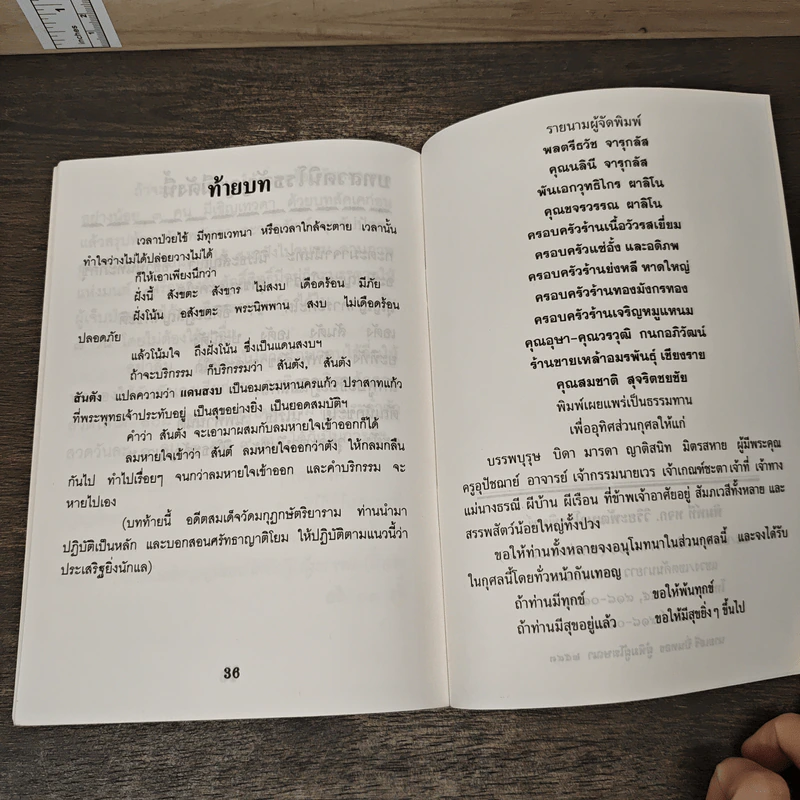 ท้ายบท
เวลาป่วยไข้ มีทุกขเวทนา หรือเวลาใกล้จะตาย เวลานั้น
ทำใจว่างไม่ได้ปล่อยวางไม่ได้
ก็ให้เอาเพียงนึกว่า
ฝั่งนี้ สังขตะ สังขาร ไม่สงบ เดือดร้อน มีภัย
ฝั่งโน้น อสังขตะ พระนิพพาน สงบ ไม่เดือดร้อน
ปลอดภัย
แล้วโน้มใจ ถึงฝั่งโน้น ซึ่งเป็นแดนสงบฯ
ถ้าจะบริกรรม ก็บริกรรมว่า สันตัง, สันตัง
สันตัง แปลความว่า แดนสงบ เป็นอมตะมหานครแก้ว ปราสาทแก้ว
ที่พระพุทธเจ้าประทับอยู่ เป็นสุขอย่างยิ่ง เป็นยอดสมบัติฯ
คำว่า สันตัง จะเอามาผสมกับลมหายใจเข้าออกก็ได้
ลมหายใจเข้าว่า สันต์ ลมหายใจออกว่าตัง ให้กลมกลืน
กันไป ทำไปเรื่อยๆ จนกว่าลมหายใจเข้าออก และคำบริกรรม จะ
หายไปเอง
(บทท้ายนี้ อดีตสมเด็จวัดมกุฏกษัตริยาราม ท่านนำมา
ปฏิบัติเป็นหลัก และบอกสอนศรัทธาญาติโยม ให้ปฏิบัติตามแนวนี้ว่า
ประเสริฐยิ่งนักแล)
36
รายนามผู้จัดพิมพ์
พลตรีธวัช จารุกลัส
คุณนลินี จารุกลัส
พันเอกวุทธิไกร ผาลิโน
คุณขจรวรรณ ผาลิโน
ครอบครัวร้านเนื้อวัวรสเยี่ยม
ครอบครัวแซ่อึ้ง และอดิภพ
ครอบครัวร้านย่งหลี หาดใหญ่
ครอบครัวร้านทองมังกรทอง
ครอบครัวร้านเจริญหมูแหนม
คุณอุษา-คุณวรวุฒิ กนกอภิวัฒน์
ร้านขายเหล้าอมรพันธุ์ เชียงราย
คุณสมชาติ สุจริตชยชัย
พิมพ์เผยแพร่เป็นธรรมทาน
เพื่ออุทิศส่วนกุศลให้แก่
บรรพบุรุษ บิดา มารดา ญาติสนิท มิตรสหาย ผู้มีพระคุณ
ครูอุปัชฌาย์ อาจารย์ เจ้ากรรมนายเวร เจ้าเกณฑ์ชะตา เจ้าที่ เจ้าทาง
แม่นางธรณี ผีบ้าน ผีเรือน ที่ข้าพเจ้าอาศัยอยู่ สัมภเวสีทั้งหลาย และ
สรรพสัตว์น้อยใหญ่ทั้งปวง
ขอให้ท่านทั้งหลายจงอนุโมทนาในส่วนกุศลนี้ และจงได้รับ
ในกุศลนี้โดยทั่วหน้ากันเทอญ
ถ้าท่านมีทุกข์ ขอให้พ้นทุกข์
ถ้าท่านมีสุขอยู่แล้ว ขอให้มีสุขยิ่งๆ ขึ้นไป